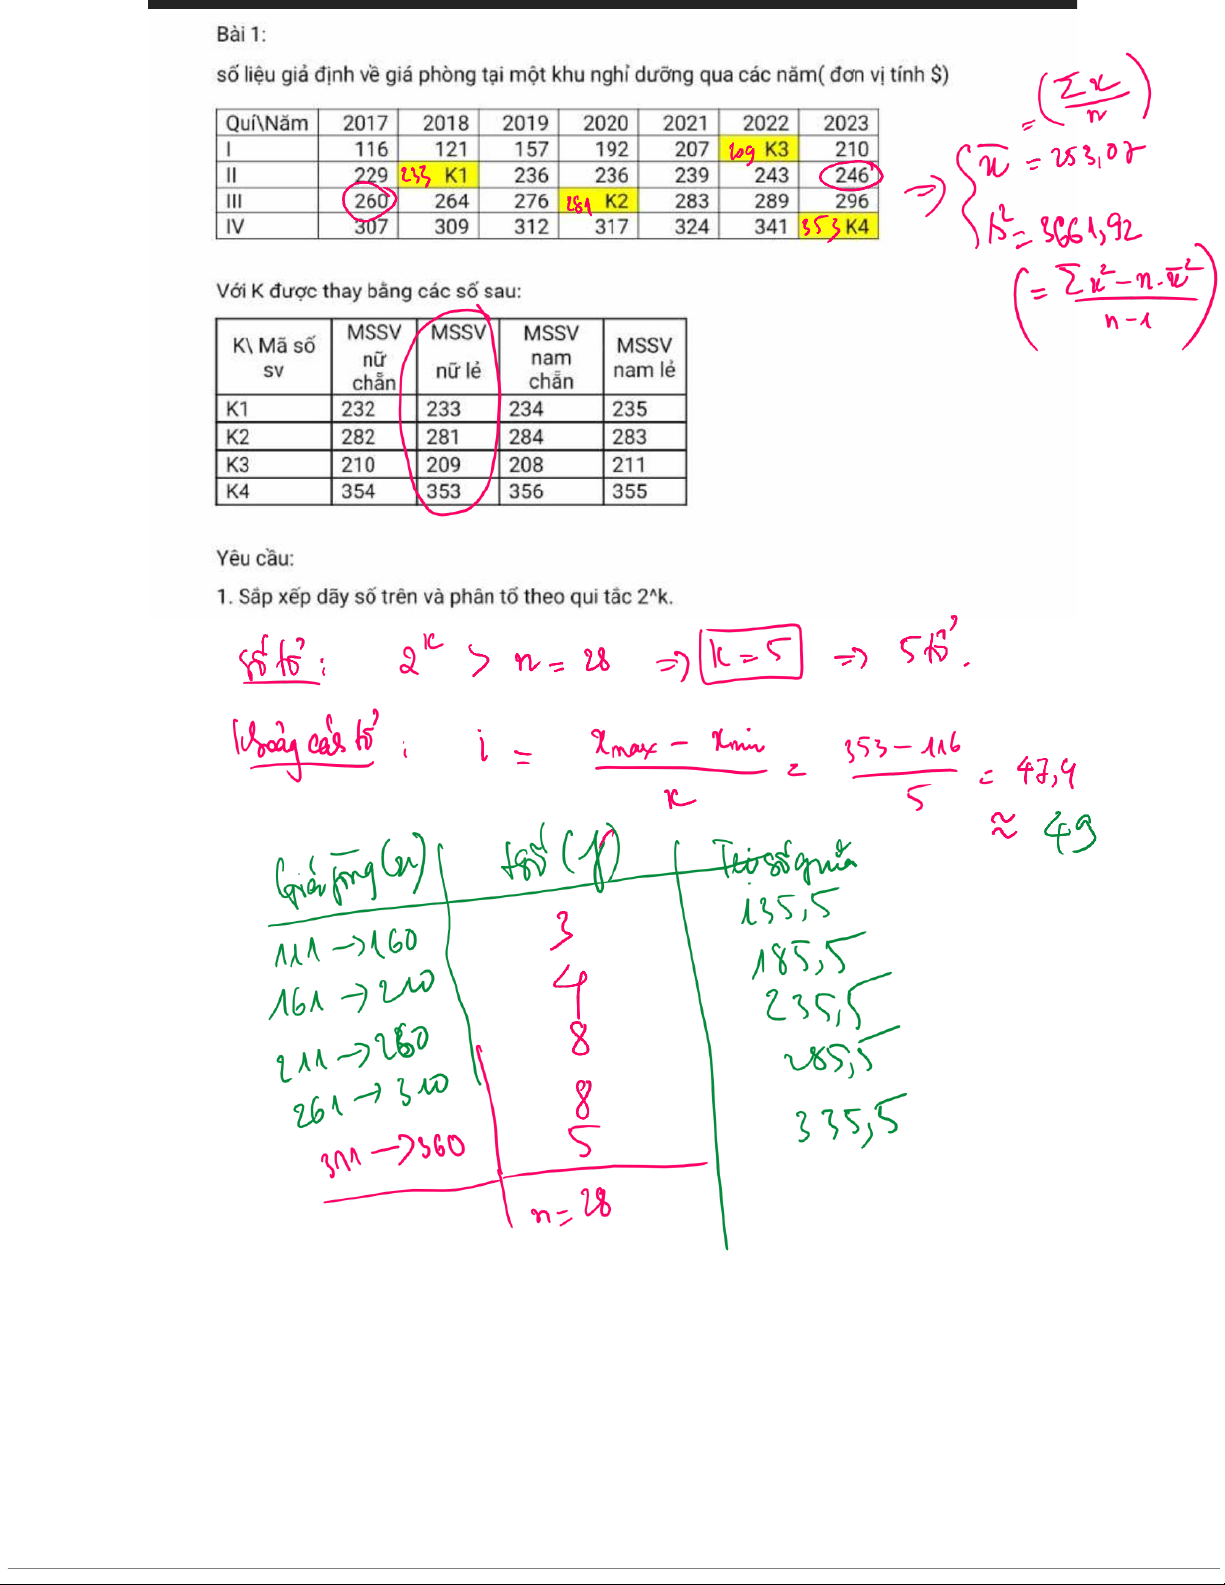 Bài 1:
số liệu giả định về giá phòng tại một khu nghỉ dưỡng qua các năm( đơn vị tính $)
Quí\Năm 2017 2018 2019 2020 2021 2022 2023
I 116 121 157 192 207 209 K3 210
II 229 233 K1 236 236 239 243 246
III 260 264 276 281 K2 283 289 296
IV 307 309 312 317 324 341 353 K4
= (Σx / n)
=> { x̄ = 253,07
s² = 3661,92
(= Σx² - n.x̄² / n-1)
Với K được thay bằng các số sau:
K\ Mã số sv MSSV nữ chẵn MSSV nữ lẻ MSSV nam chẵn MSSV nam lẻ
K1 232 233 234 235
K2 282 281 284 283
K3 210 209 208 211
K4 354 353 356 355
Yêu cầu:
1. Sắp xếp dãy số trên và phân tổ theo qui tắc 2^k.
số tổ: 2^k > n = 28 => k = 5 => 5 tổ.
Khoảng cách tổ: i = xmax - xmin / k = 353 - 116 / 5 = 47,4
≈ 49
Giá phòng (x) tsố (f) Trị số giữa
111 → 160 3 135,5
161 → 210 4 185,5
211 → 260 8 235,5
261 → 310 8 285,5
311 → 360 5 335,5
n = 28